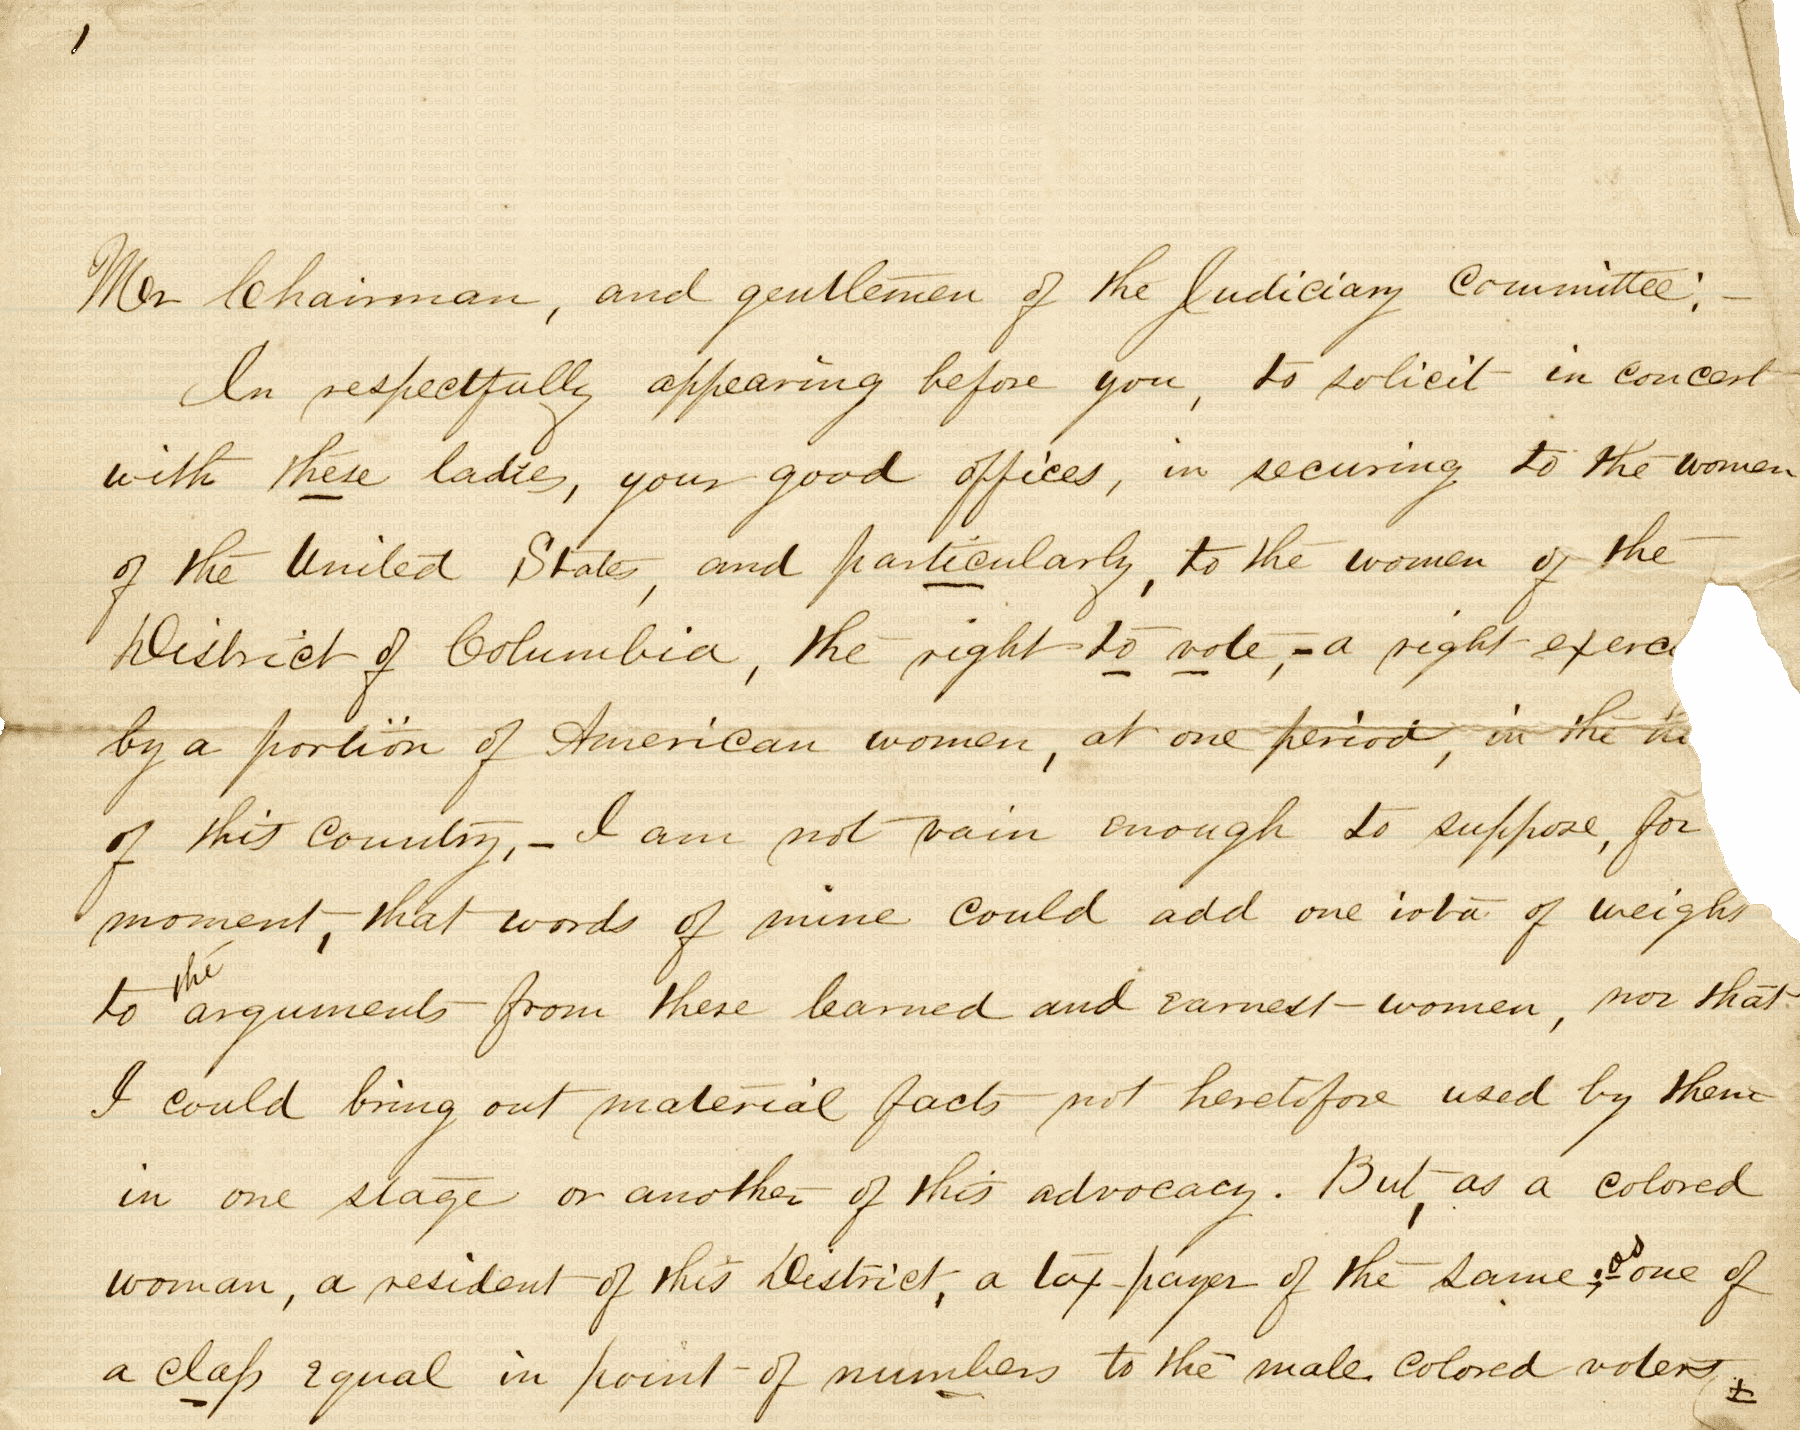 1
Mr Chairman, and gentlemen of the Judiciary Committee; –
In respectfully appearing before you, to solicit in concert
with these ladies, your good offices, in securing to the women
of the United States, and particularly, to the women of the
District of Columbia, the right to vote, – a right exerc
by a portion of American women, at one period, in the
of this country, – I am not vain enough to suppose, for
moment, that words of mine could add one iota of weight
to the arguments from these learned and earnest women, nor that
I could bring out material facts not heretofore used by them
in one stage or another of this advocacy. But, as a colored
woman, a resident of this District, a tax-payer of the same; as one of
a class equal in point of numbers to the male colored voters